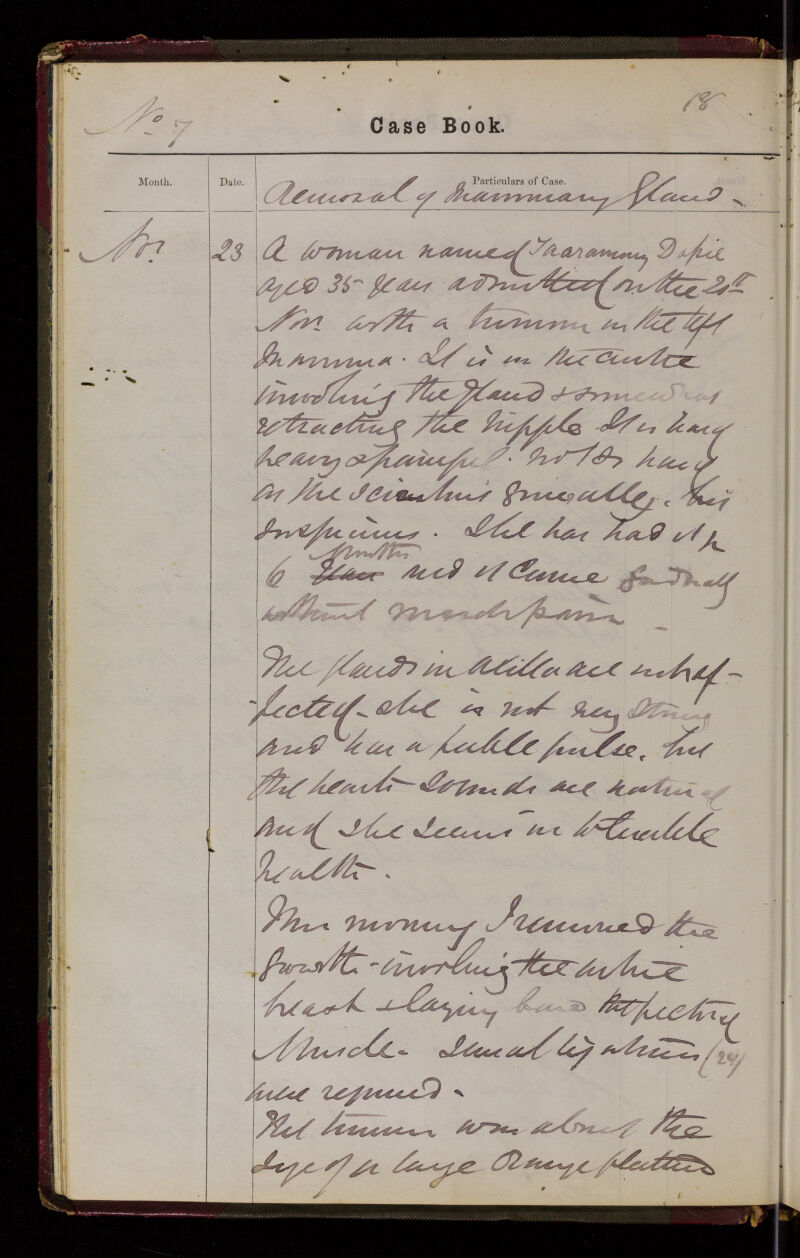 No 7
18
Case Book.
Month. Date. Particulars of Case.
Removal of Mammary Gland -
Nov. 23 A woman named
aged 35 years admitted on the 20th
Nov. with a tumour in the left
Mamma. It is in the centre
involving the gland & somewhat
retracting the nipple It is hard
heavy & painful. not so hard
as the scirrhus generally. but
suspicious. She has had it for
6 Months Years and it came gradually
without much pain -
The glands in axilla are not af-
-fected - she is not very strong
and has a feeble pulse. but
the hearts sounds are natural
and she seems in tolerable
health.
This morning I removed the
growth - involving the entire
breast & laying bare the pectoral
Muscle. Several ligatures (24)
were required -
The tumour was about the
size of a large Orange flattened